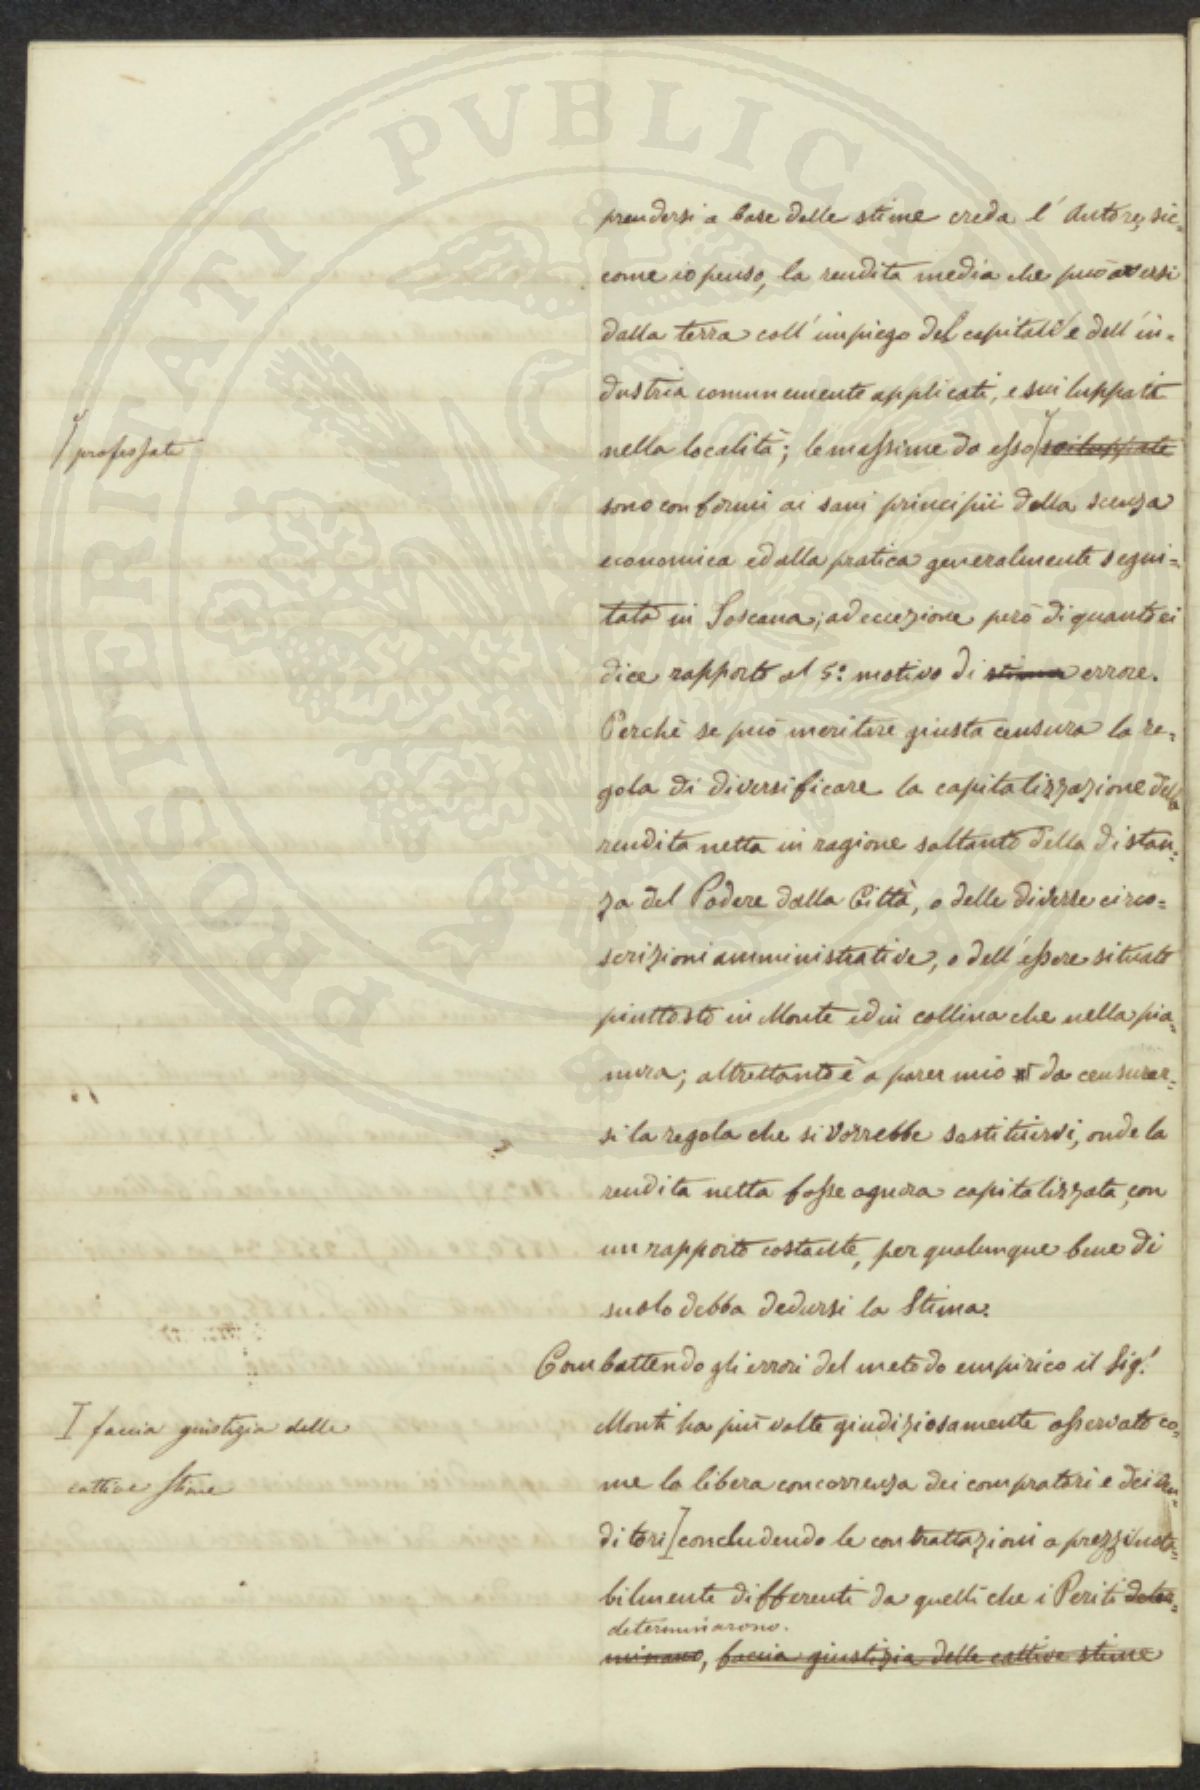 prendersi a base delle stime creda l'Autore, sic-
come io penso, la rendita media che può aversi
dalla terra coll'impiego del capitale e dell'in-
dustria comunemente applicati, e sviluppata
nella località; le massime da esso sviluppate
professate
sono conformi ai sani principii della scenza
economica ed alla pratica generalmente segui-
tata in Toscana; ad eccezione però di quanto ci
dice rapporto al 5.º motivo di stima errore.
Perchè se può meritare giusta censura la re-
gola di diversificare la capitalizzazione della
rendita netta in ragione soltanto della distan-
za del Podere dalla Città, o delle diverse circo-
scrizioni amministrative, o dell'essere situato
piuttosto in Monte ed in collina che nella pia-
nura; altrettanto è a parer mio da censurar-
si la regola che si vorrebbe sostituirvi, onde la
rendita netta fosse ognora capitalizzata, con
un rapporto costante, per qualunque bene di
suolo debba dedursi la Stima.
Combattendo gli errori del metodo empirico il Sig.r
Monti ha più volte giudiziosamente osservato co-
me la libera concorrenza dei compratori e dei ven-
ditori concludendo le contrattazioni a prezzi nota-
faccia giustizia delle
cattive stime
bilmente differenti da quelli che i Periti deter-
determinarono.
minano, faccia giustizia delle cattive stime
PROSPERITATI PUBLICAE